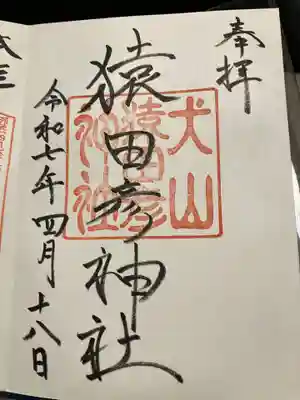 奉拝
犬山
猿田彦
神社
猿田彦神社
令和七年四月十八日